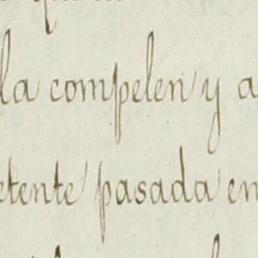 la compelen y a
etente pasada en